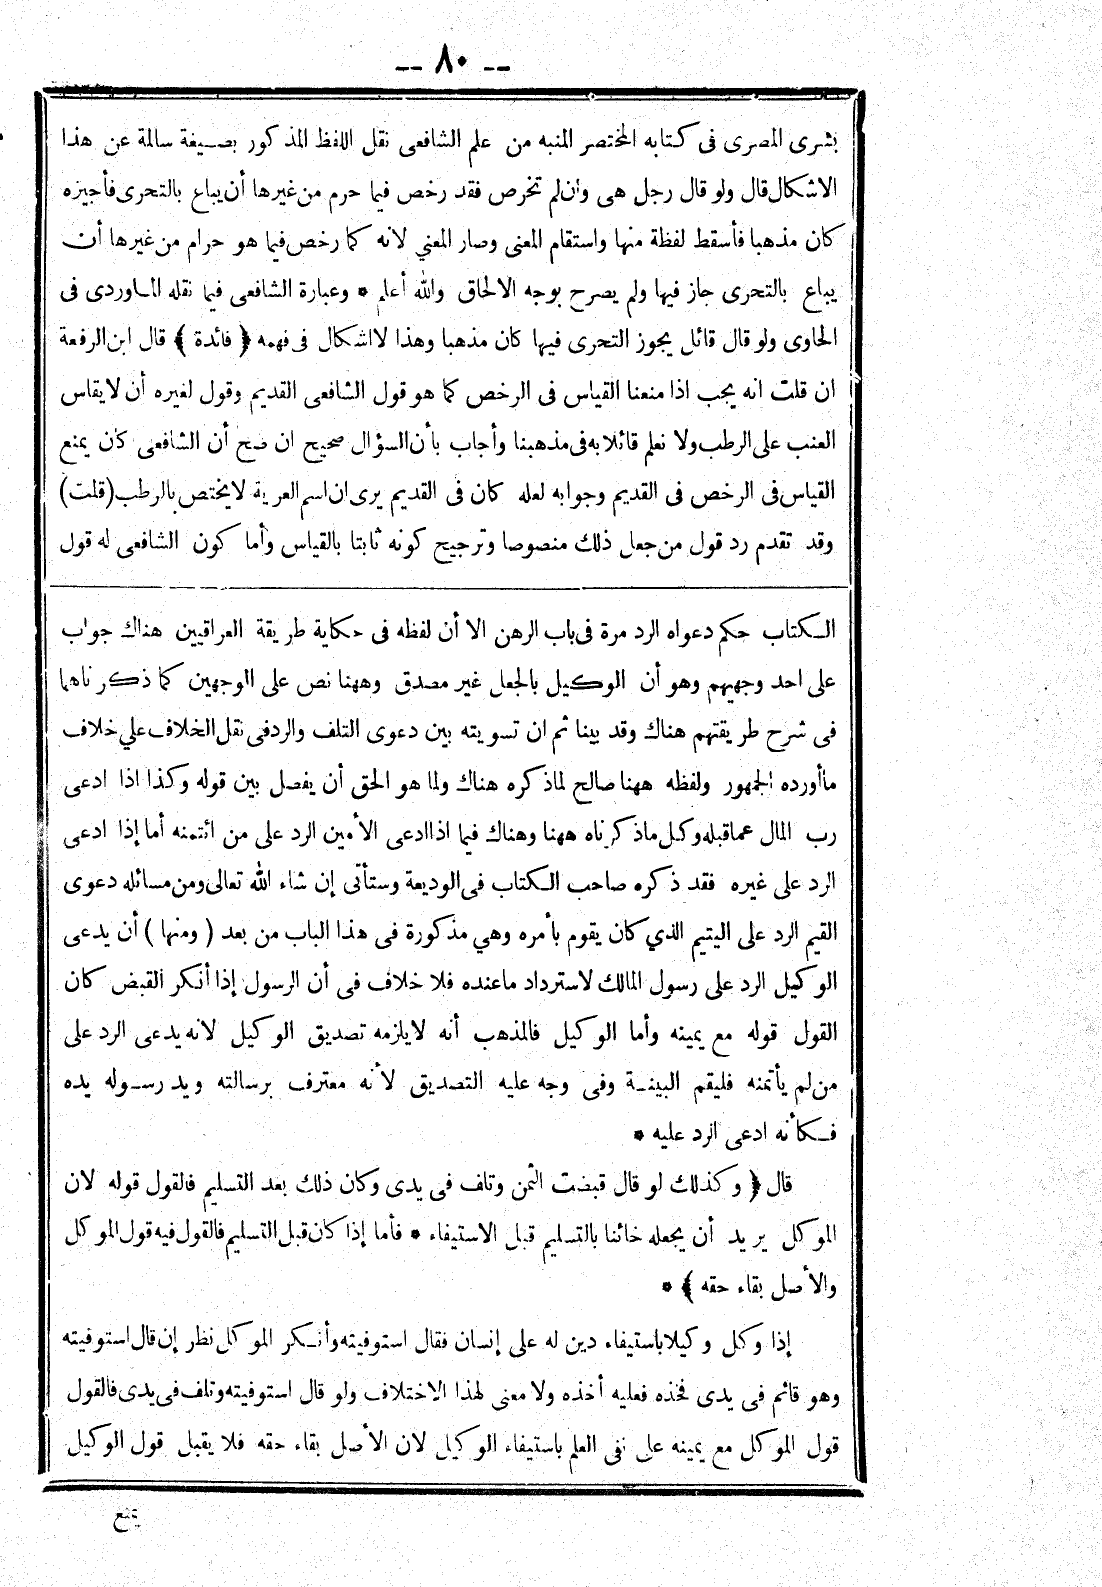 -- ٨٠ --
بشرى المصرى فى كتابه المختصر المنبه من علم الشافعى نقل اللفظ المذكور بصيغة سالمة عن هذا
الاشكال قال ولو قال رجل هى وان لم تخرص فقد رخص فيما حرم من غيرها أن يباع بالتحرى فأجيزه
كان مذهبا فأسقط لفظة منها واستقام المعنى وصار المعني لانه كما رخص فيما هو حرام من غيرها أن
يباع بالتحرى جاز فيها ولم يصرح بوجه الالحاق والله أعلم * وعبارة الشافعى فيما نقله الماوردى فى
الحاوى ولو قال قائل يجوز التحرى فيها كان مذهبا وهذا لا اشكال فى فهمه ﴿ فائدة ﴾ قال ابن الرفعة
ان قلت انه يجب اذا منعنا القياس فى الرخص كما هو قول الشافعى القديم وقول لغيره أن لا يقاس
العنب على الرطب ولا نعلم قائلا به فى مذهبنا وأجاب بأن السؤال صحيح ان صح أن الشافعى كان يمنع
القياس فى الرخص فى القديم وجوابه لعله كان فى القديم يرى ان اسم العرية لا يختص بالرطب (قلت)
وقد تقدم رد قول من جعل ذلك منصوصا وترجيح كونه ثابتا بالقياس وأما كون الشافعى له قول
الكتاب حكم دعواه الرد مرة فى باب الرهن الا أن لفظه فى حكاية طريقة العراقيين هناك جواب
على احد وجهيهم وهو أن الوكيل بالجعل غير مصدق وههنا نص على الوجهين كما ذكرناهما
فى شرح طريقتهم هناك وقد بينا ثم ان تسويته بين دعوى التلف والرد فى نقل الخلاف علي خلاف
ما أورده الجمهور ولفظه ههنا صالح لما ذكره هناك ولما هو الحق أن يفصل بين قوله وكذا اذا ادعى
رب المال عما قبله وكل ما ذكرناه ههنا وهناك فيما اذا ادعى الأمين الرد على من ائتمنه أما إذا ادعى
الرد على غيره فقد ذكره صاحب الكتاب فى الوديعة وستأتى إن شاء الله تعالى ومن مسائله دعوى
القيم الرد على اليتيم الذي كان يقوم بأمره وهي مذكورة فى هذا الباب من بعد ( ومنها ) أن يدعى
الوكيل الرد على رسول المالك لاسترداد ما عنده فلا خلاف فى أن الرسول إذا أنكر القبض كان
القول قوله مع يمينه وأما الوكيل فالمذهب أنه لا يلزمه تصديق الوكيل لانه يدعى الرد على
من لم يأتمنه فليقم البينة وفى وجه عليه التصديق لأنه معترف برسالته ويد رسوله يده
فكأنه ادعى الرد عليه *
قال ﴿ وكذلك لو قال قبضت الثمن وتلف فى يدى وكان ذلك بعد التسليم فالقول قوله لان
الموكل يريد أن يجعله خائنا بالتسليم قبل الاستيفاء * فأما إذا كان قبل التسليم فالقول فيه قول الموكل
والأصل بقاء حقه ﴾ *
إذا وكل وكيلا باستيفاء دين له على إنسان فقال استوفيته وأنكر الموكل نظر إن قال استوفيته
وهو قائم فى يدى فخذه فعليه أخذه ولا معنى لهذا الاختلاف ولو قال استوفيته وتلف فى يدى فالقول
قول الموكل مع يمينه على نفى العلم باستيفاء الوكيل لان الأصل بقاء حقه فلا يقبل قول الوكيل
يمنع